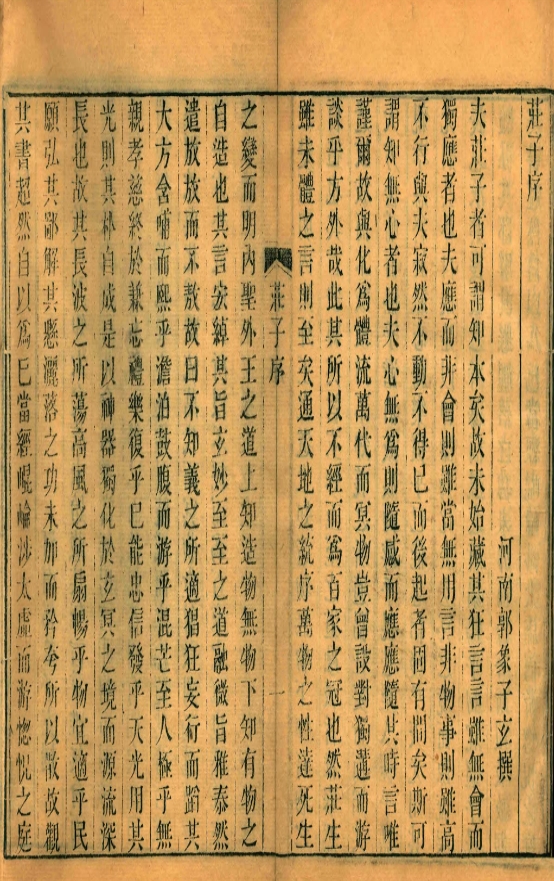 莊子序
河南郭象子玄撰
夫莊子者可謂知本矣故未始藏其狂言言雖無會而
獨應者也夫應而非會則雖當無用言非物事則雖高
不行與夫寂然不動不得已而後起者固有間矣斯可
謂知無心者也夫心無爲則隨感而應應隨其時言唯
謹爾故與化爲體流萬代而冥物豈曾設對獨遘而游
談乎方外哉此其所以不經而爲百家之冠也然莊生
雖未體之言則至矣通天地之統序萬物之性達死生
莊子序
一
之變而明內聖外王之道上知造物無物下知有物之
自造也其言宏綽其旨玄妙至至之道融微旨雅泰然
遣放放而不敖故曰不知義之所適猖狂妄行而蹈其
大方含哺而熙乎澹泊鼓腹而游乎混芒至人極乎無
親孝慈終於兼忘禮樂復乎已能忠信發乎天光用其
光則其朴自成是以神器獨化於玄冥之境而源流深
長也故其長波之所蕩高風之所扇暢乎物宜適乎民
願弘其鄙解其懸灑落之功未加而矜夸所以散故觀
其書超然自以爲已當經崐崘涉太虛而游惚怳之庭